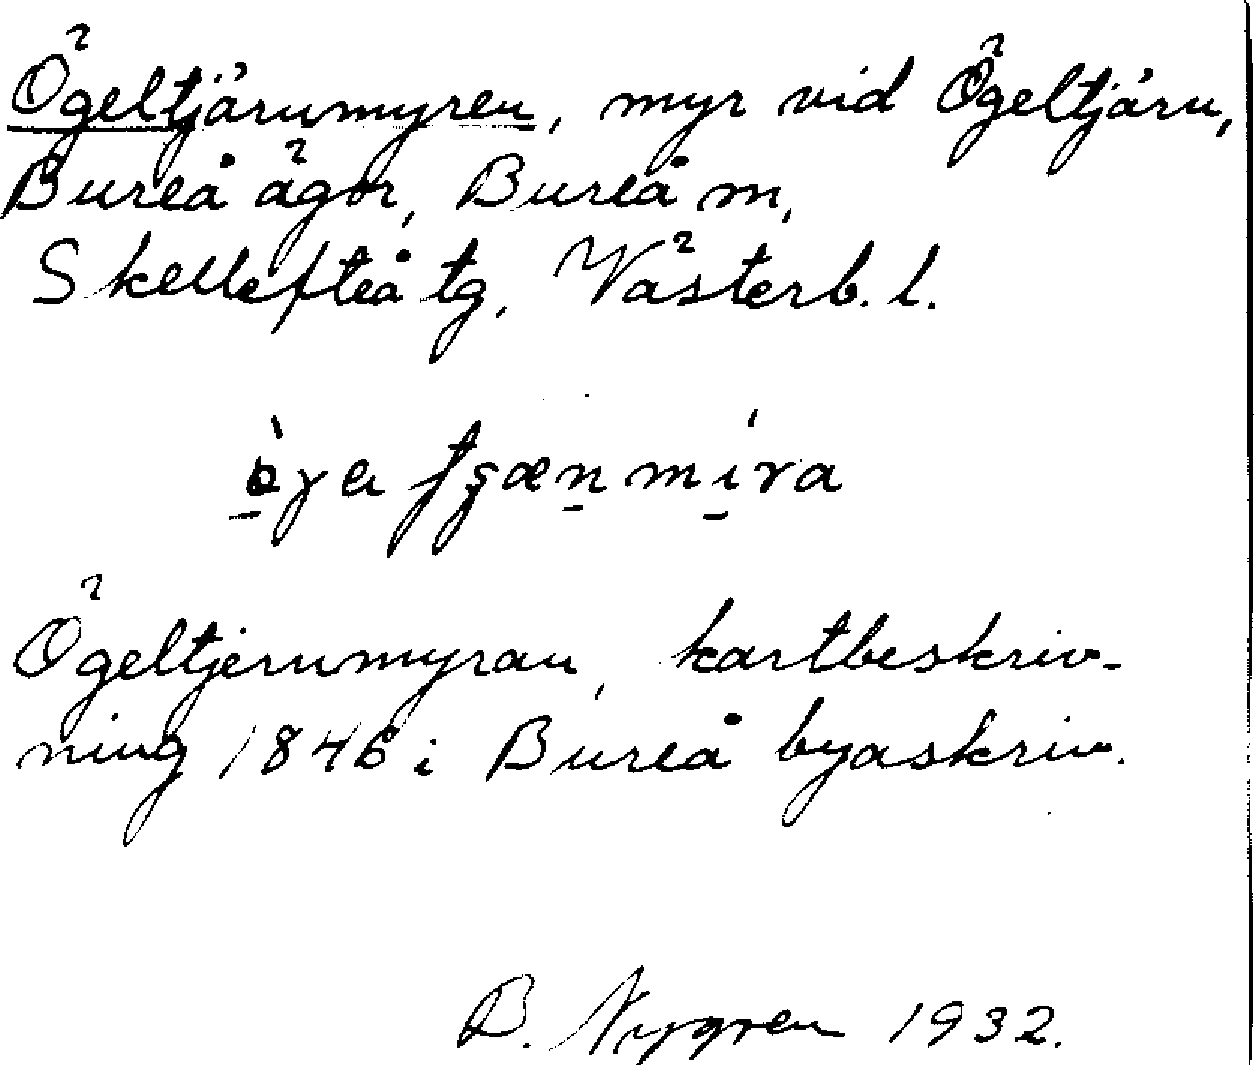 Ögeltjärnmyren, myr vid Ögeltjärn,
Bureå ägor, Bureå m,
Skellefteå tg, Västerb. l.
Ögeltjernmyran, kartbeskriv-
ning 1846 i Bureå byaskriv.
B. Nygren 1932.